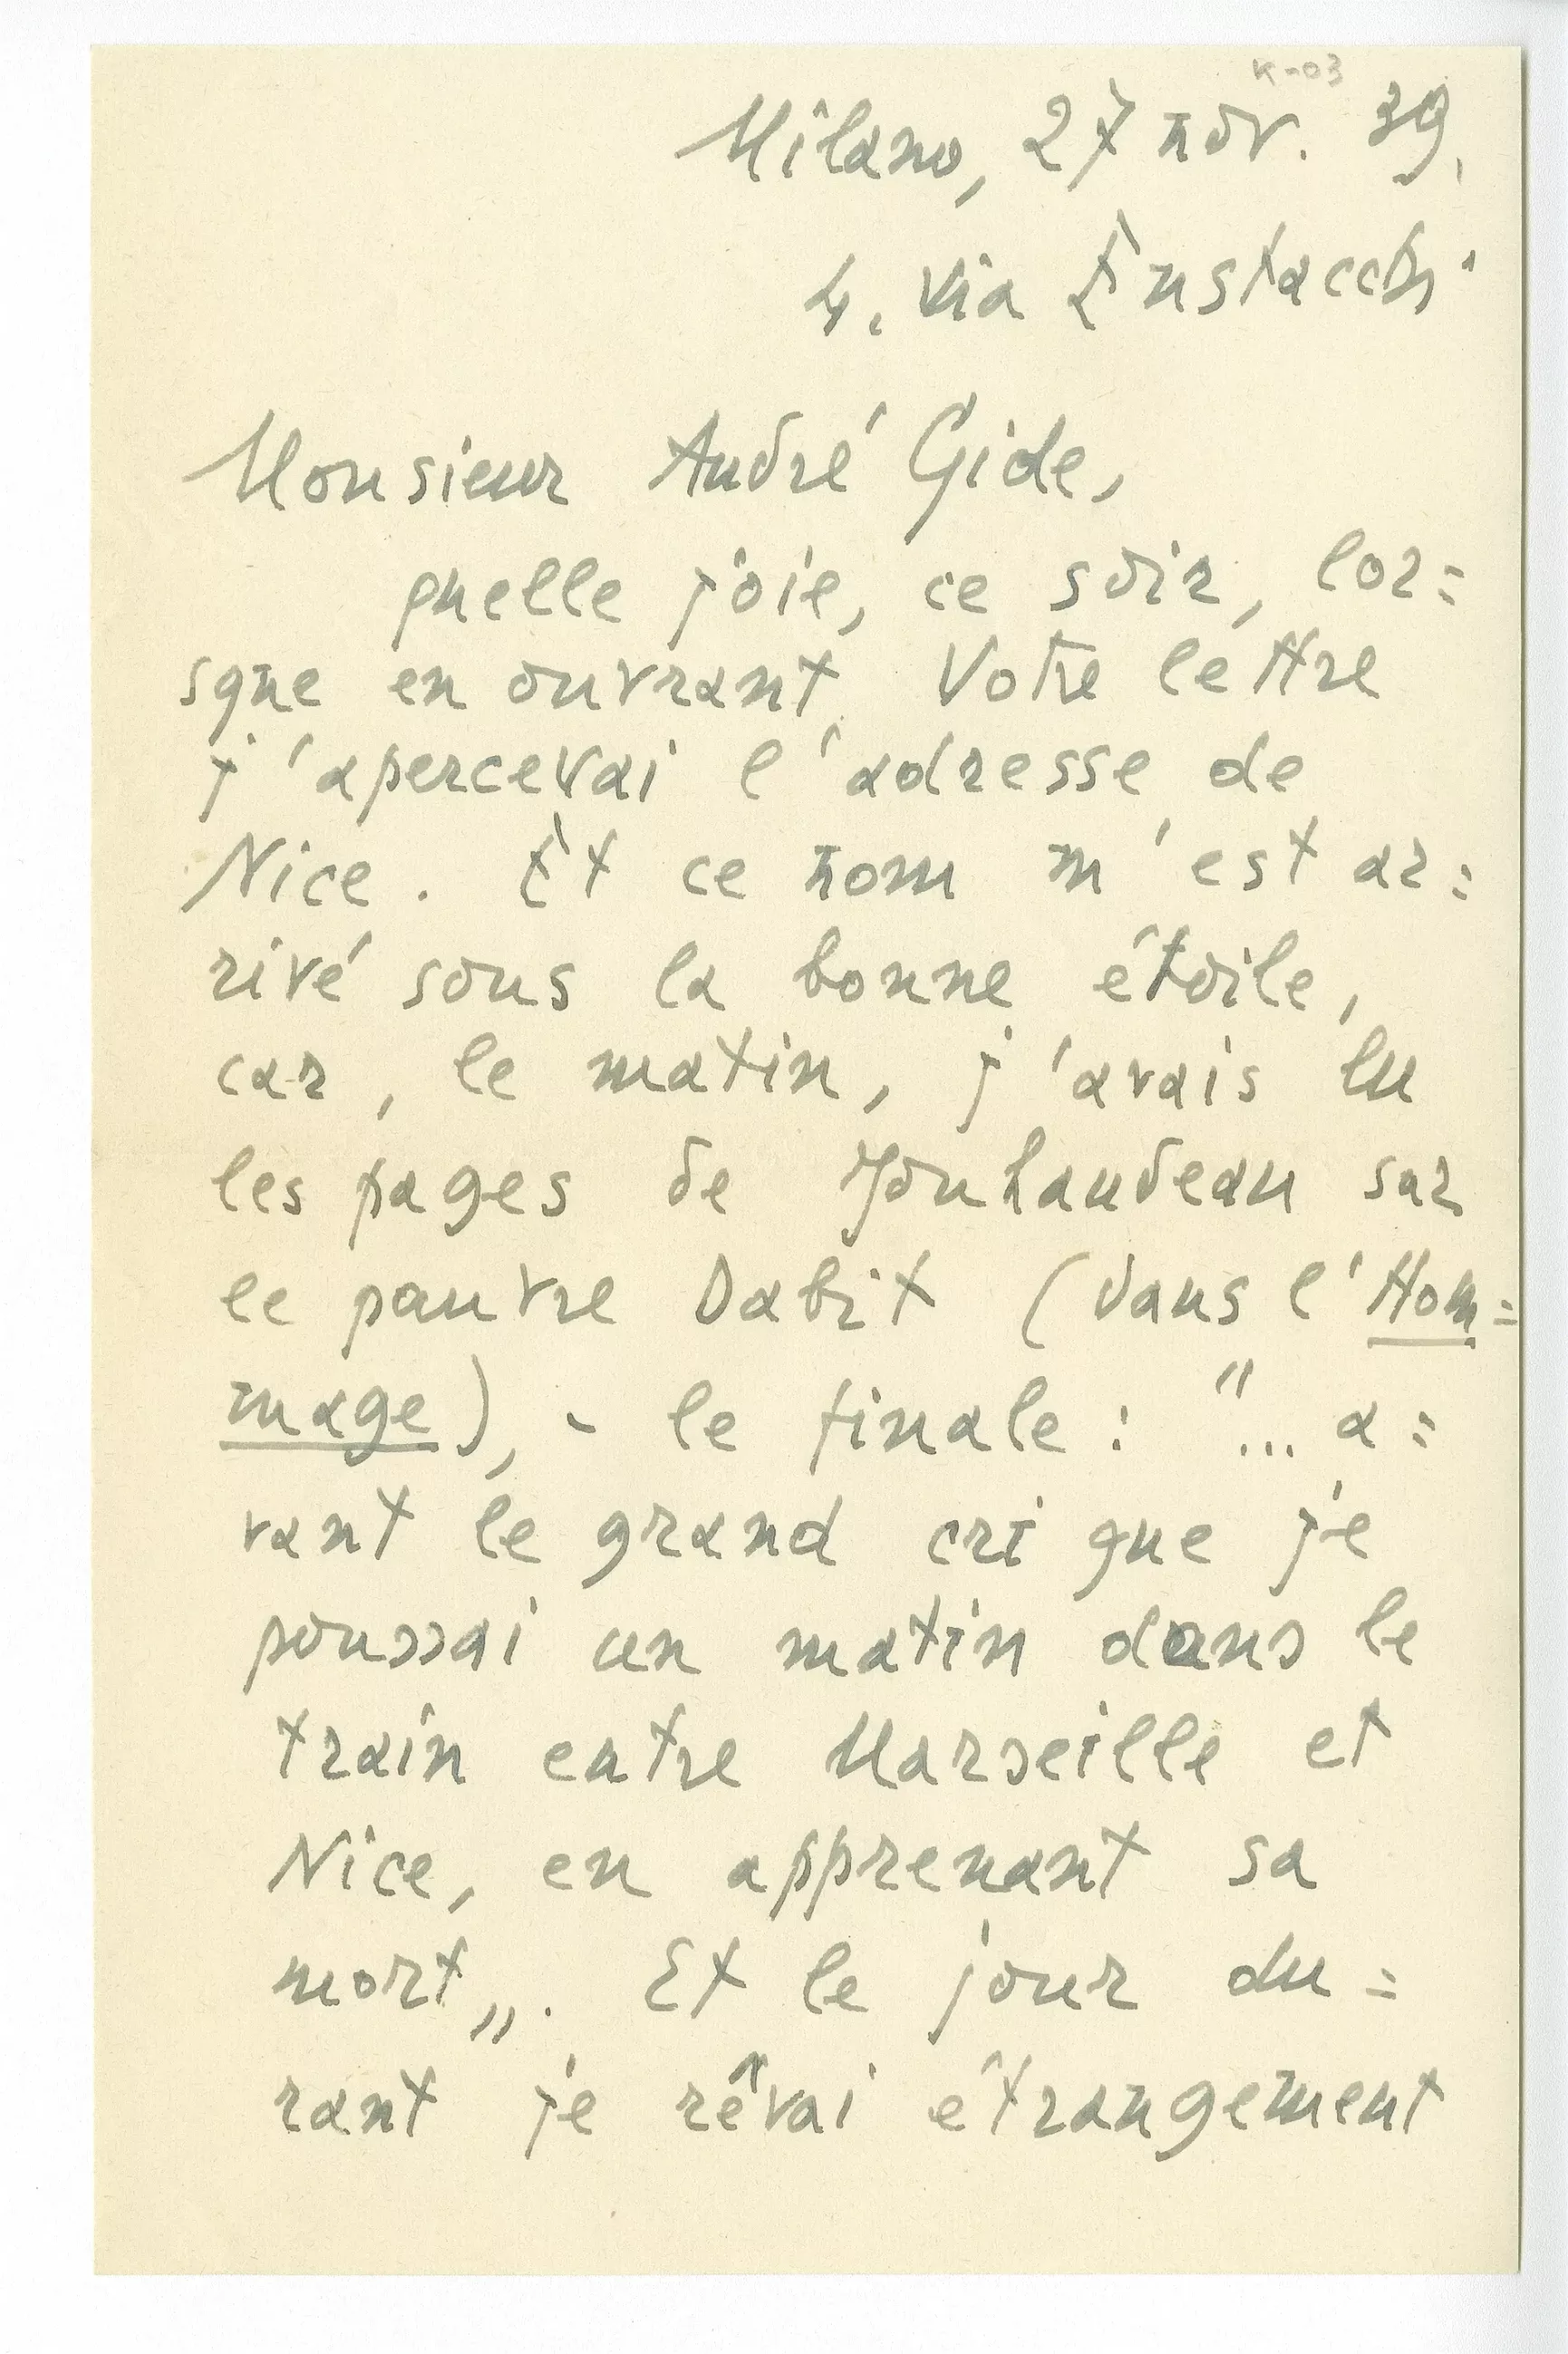 K-03
Milano, 27 nov. 39.
4. Via Eustacchi
Monsieur André Gide,
quelle joie, ce soir, lor=
sque en ouvrant Votre lettre
j'apercevai l'adresse de
Nice. Et ce nom m'est ar=
rivé sous la bonne étoile,
car, le matin, j'avais lu
les pages de Jouhandeau sur
le pauvre Dabit (dans l'Hom=
mage), - le finale : "... a=
vant le grand cri que je
poussai un matin dans le
train entre Marseille et
Nice, en apprenant sa
mort„. Et le jour du=
rant je rêvai étrangement